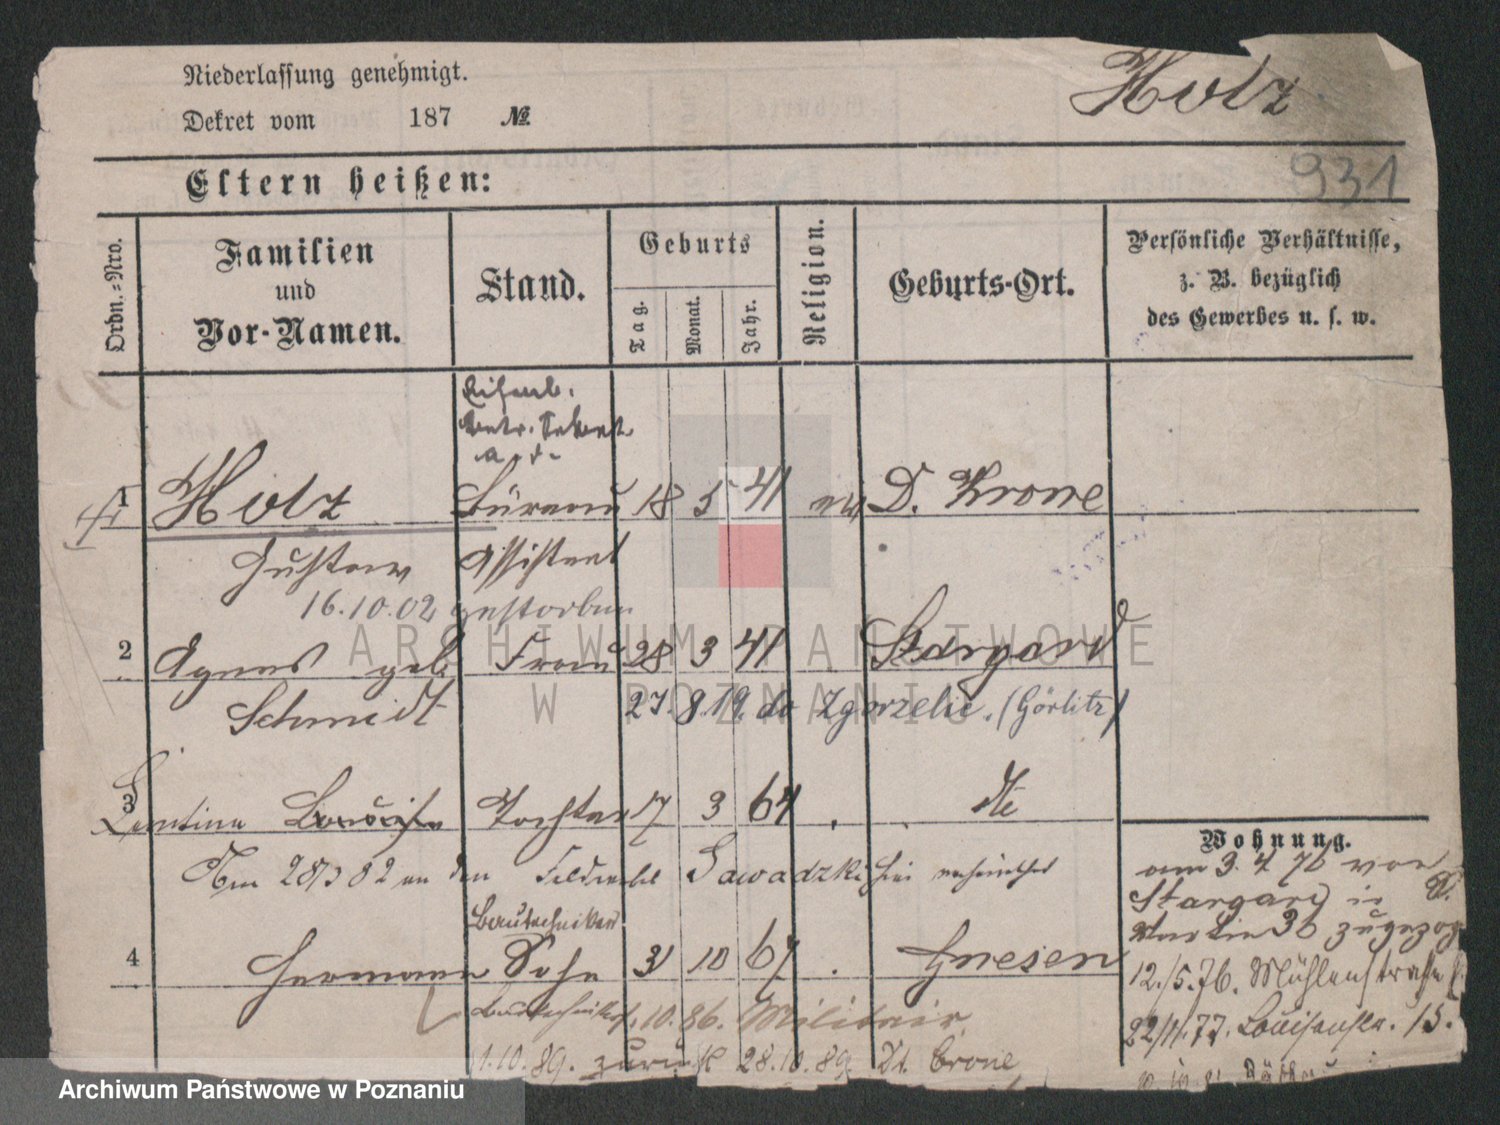 Niederlassung genehmigt.
Dekret vom 187 №
Hotz
931
Eltern heißen:
Ordn.-Nro.
Familien
und
Vor-Namen.
Stand.
Geburts
Tag.
Monat.
Jahr.
Religion.
Geburts-Ort.
Persönliche Verhältnisse,
z. B. bezüglich
des Gewerbes u. s. w.
Eisenb.
Betr. Sekret
a. D.
1 Hotz Büreau 18 5 41 ev D. Krone
Gustav Assistent
16.10.02 gestorben
2 Agnes geb Frau 28 3 41 Stargard
Schmidt 27. 8. 19. do Zgorzelic. (Görlitz)
3 Tochter 17 3 64 dto
Am 28/3 82 an den Feldwebel Sawadzki hier
Bautechniker
4 Hermann Sohn 31 10 67 Gnesen
1.10.86. Militair
1.10.89. zurück 28.10.89. Dt. Crone
Wohnung.
am 3. 4 76 von
Stargard in St.
Martin 36 zugezog
12./5.76. Mühlenstraße
22/11.77. Louisenstr. 15.
ARCHIWUM PAŃSTWOWE
W POZNANIU
Archiwum Państwowe w Poznaniu